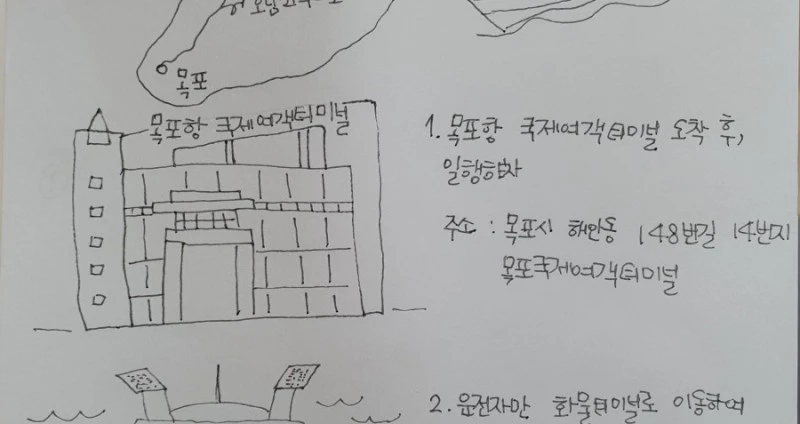 목포
목포항 국제여객터미널
1. 목포항 국제여객터미널 도착 후,
일행하차
주소 : 목포시 해안동 148번길 14번지
목포국제여객터미널
2. 운전자만 화물터미널로 이동하여